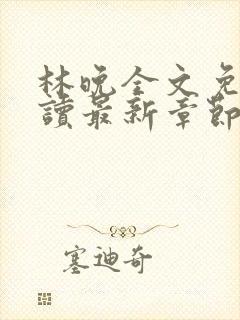 林晚全文免
讀最新章節
塞迪奇